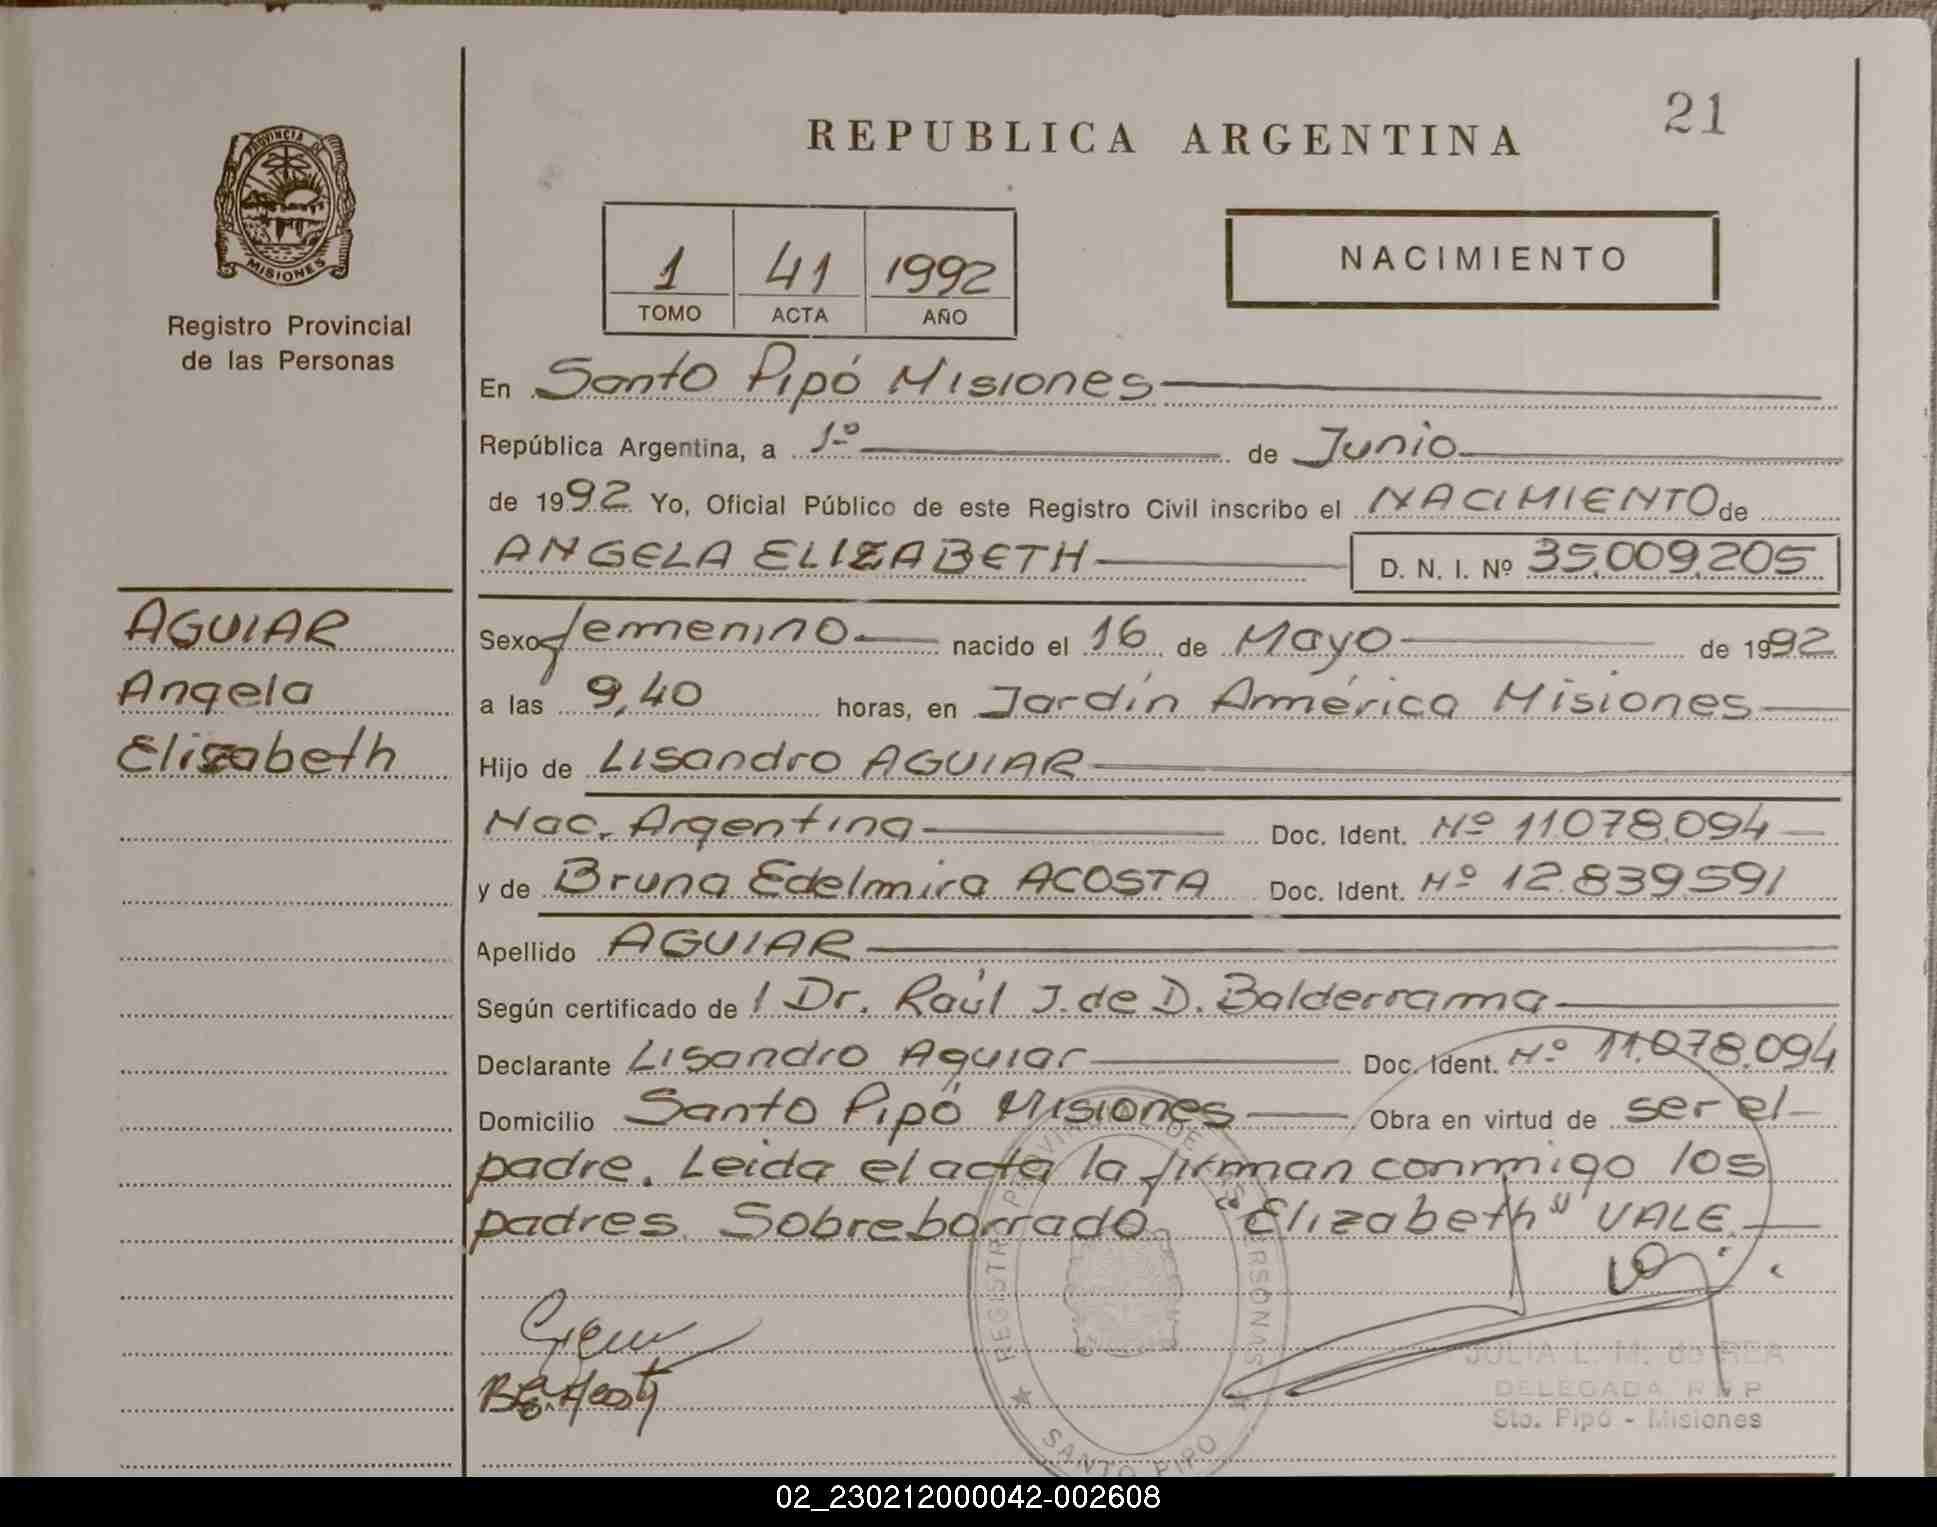 21
REPUBLICA ARGENTINA
PROVINCIA DE
MISIONES
Registro Provincial
de las Personas
1 41 1992
TOMO ACTA AÑO
NACIMIENTO
En Santo Pipó Misiones
República Argentina, a 1º de Junio
de 1992 Yo, Oficial Público de este Registro Civil inscribo el NACIMIENTO de
ANGELA ELIZABETH D. N. I. Nº 35.009.205
AGUIAR
Angela
Elizabeth
Sexo femenino nacido el 16 de Mayo de 1992
a las 9,40 horas, en Jardín América Misiones
Hijo de Lisandro AGUIAR
Nac. Argentina Doc. Ident. Nº 11.078.094
y de Bruna Edelmira ACOSTA Doc. Ident. Nº 12.839.591
Apellido AGUIAR
Según certificado de l Dr. Raúl J. de D. Balderrama
Declarante Lisandro Aguiar Doc. Ident. Nº 11.078.094
Domicilio Santo Pipó Misiones Obra en virtud de ser el
padre. Leida el acta la firman conmigo los
padres. Sobreborrado "Elizabeth" VALE.
REGISTRO PROVINCIAL DE LAS PERSONAS
SANTO PIPO
JULIA L. M. de REA
DELEGADA R.P.P.
Sto. Pipó - Misiones
02_230212000042-002608